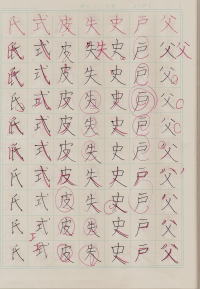 父父父父父父父父父父
戸戸戸戸戸戸戸戸戸戸
史史史史史史史史史史
失失失失失失失失失失
皮皮皮皮皮皮皮皮皮皮
式式式式式式式式式式
氏氏氏氏氏氏氏氏氏